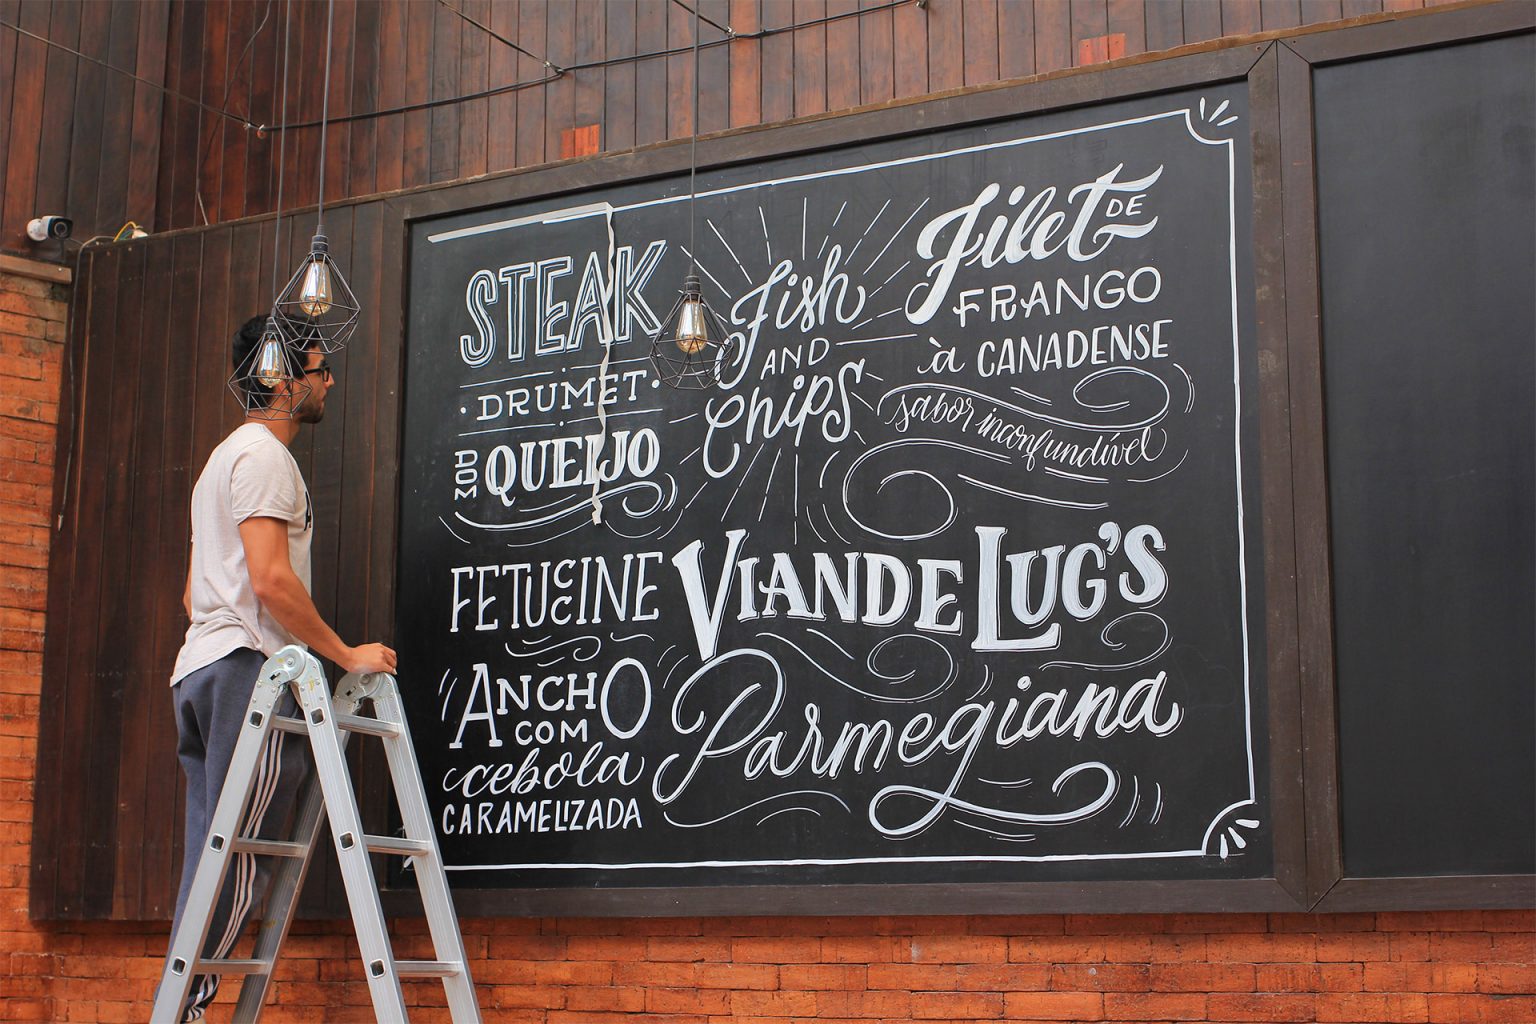 STEAK
DRUMET
DOU QUEIJO
Fish
AND
Chips
Filet DE
FRANGO
à CANADENSE
sabor inconfundível
FETUCCINE
VIANDE LUG'S
ANCHO
COM
cebola
CARAMELIZADA
Parmegiana